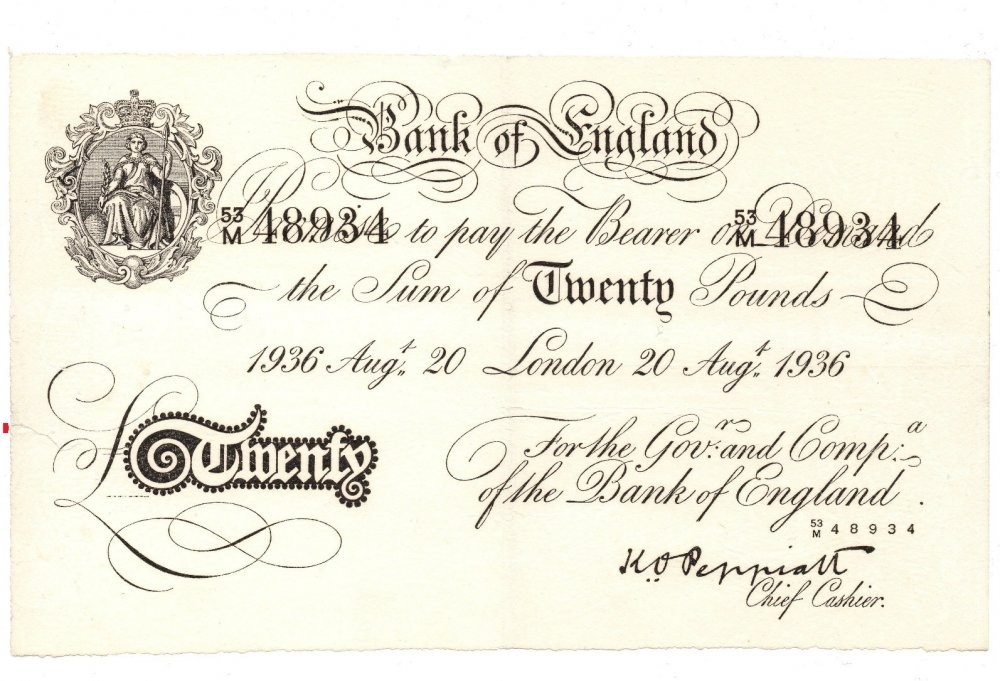 Bank of England
53/M 48934 to pay the Bearer on Demand 53/M 48934
the Sum of Twenty Pounds
1936 Augt. 20 London 20 Augt. 1936
£Twenty
For the Govr: and Compa:
of the Bank of England.
53/M 48934
K.O. Peppiatt
Chief Cashier.